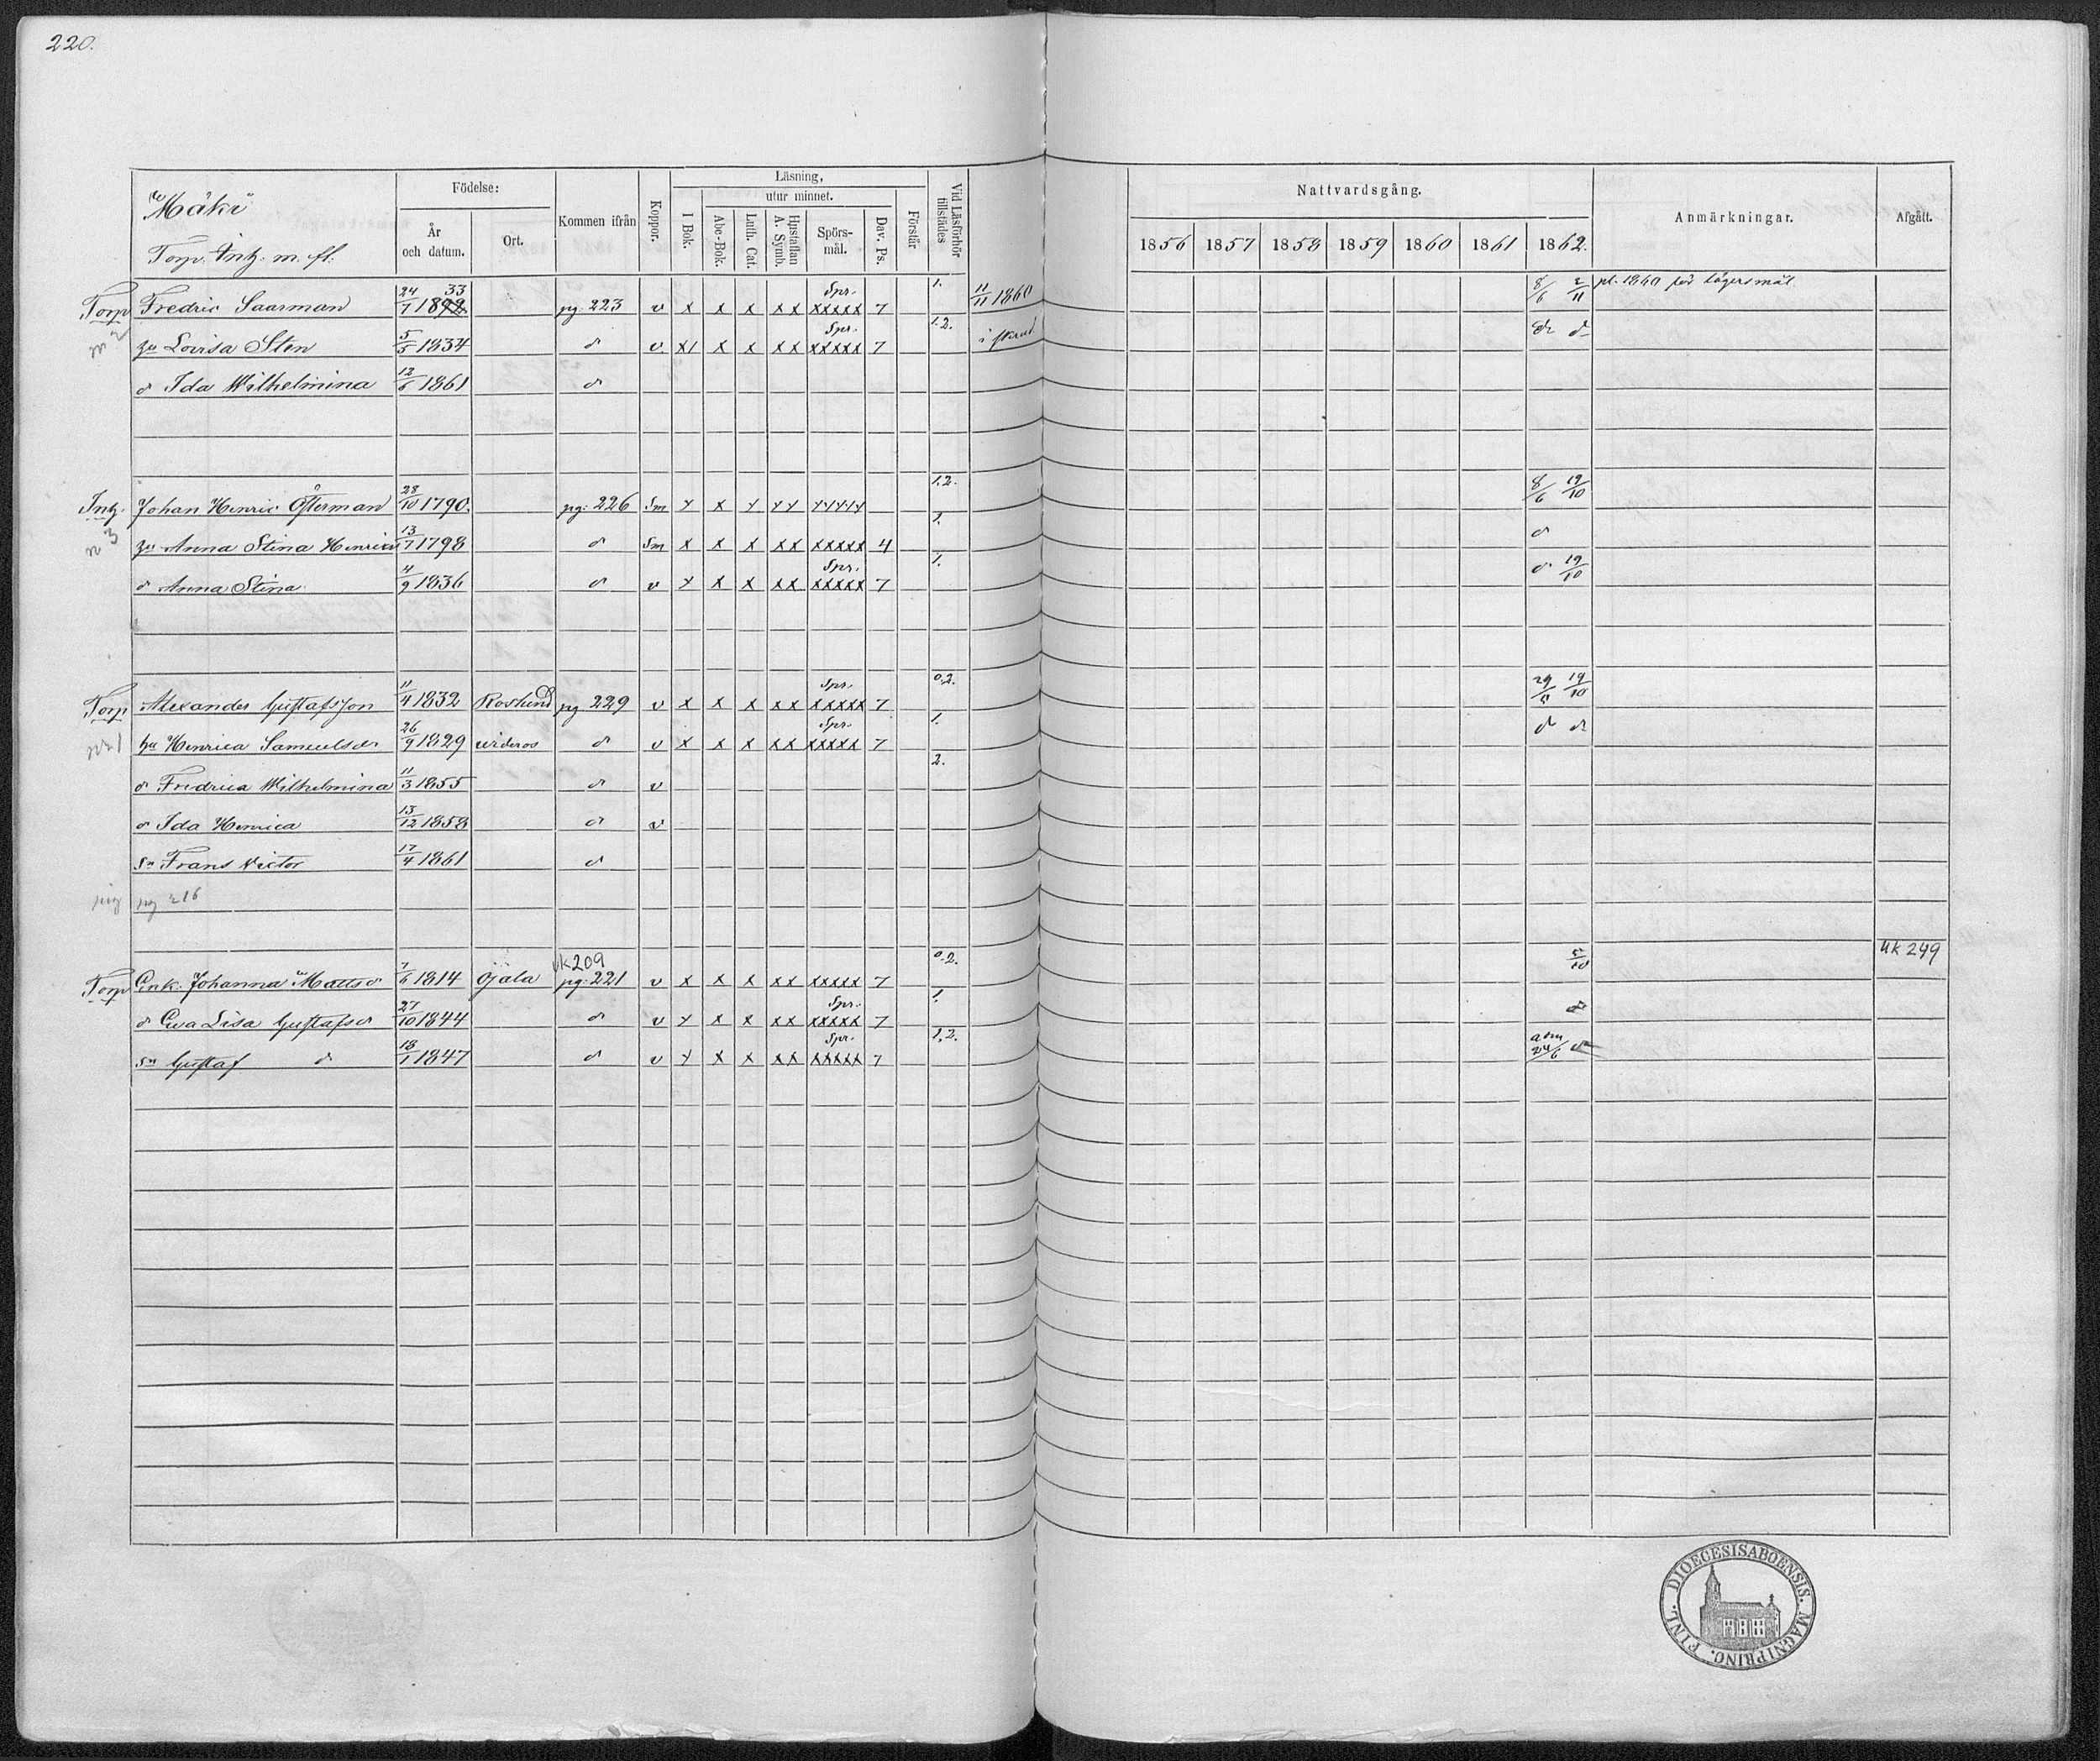 220.
Mäki
Torp. Inh. m. fl.
Födelse:
År och datum.
Ort.
Kommen ifrån
Koppor.
Läsning,
I Bok.
utur minnet.
Abc-Bok.
Luth. Cat.
Hustaflan A. Symb.
Spörs-mål.
Dav. Ps.
Förstår
Vid Läsförhör tillstädes
Nattvardsgång.
1856 1857 1858 1859 1860 1861 1862.
Anmärkningar.
Afgått.
Torp Fredric Saarman 24/7 1892 33 pg. 223 v x x x xx Spr. xxxxx 7 1. 11/11 1860 8/6 2/11 pl. 1860 för lägersmål
n 2 Lovisa Sten 5/5 1834 d v. x1 x x xx Spr. xxxxx 7 1.2. d d
d Ida Wilhelmina 12/6 1861 d
Inh. Johan Henric Österman 28/10 1790. pg: 226 Sm x x x xx xxxxx 1.2. 8/6 19/10
n 3 Anna Stina Henrics 13/7 1798 d Sm x x x xx xxxxx 4 1. d
d Anna Stina 4/9 1836 d v x x x xx Spr. xxxxx 7 1. d 19/10
Torp Alexander Gustafsson 11/4 1832 pg 229 v x x x xx Spr. xxxxx 7 0.2. 19/10
n 1 hu Henrica Samuelsdr 26/9 1829 d v x x x xx Spr. xxxxx 7 1. d d
d Fredrica Wilhelmina 11/3 1855 d v 2.
d Ida Henrica 13/12 1858 d v
Sn Frans Victor 17/4 1861 d
pig pg 216
Torp Enk. Johanna Mattsd 7/6 1814 Ojala uk 209 pg. 221 v x x x xx xxxxx 7 0.2. 5/10 uk 249
d Eva Lisa Gustafsd 27/10 1844 d v x x x xx Spr. xxxxx 7 1. d
sn Gustaf d 18/1 1847 d v x x x xx Spr. xxxxx 7 1.2. adm 24/6 d
DIOECESISABOENSIS. MAGNIPRINC. FINL.